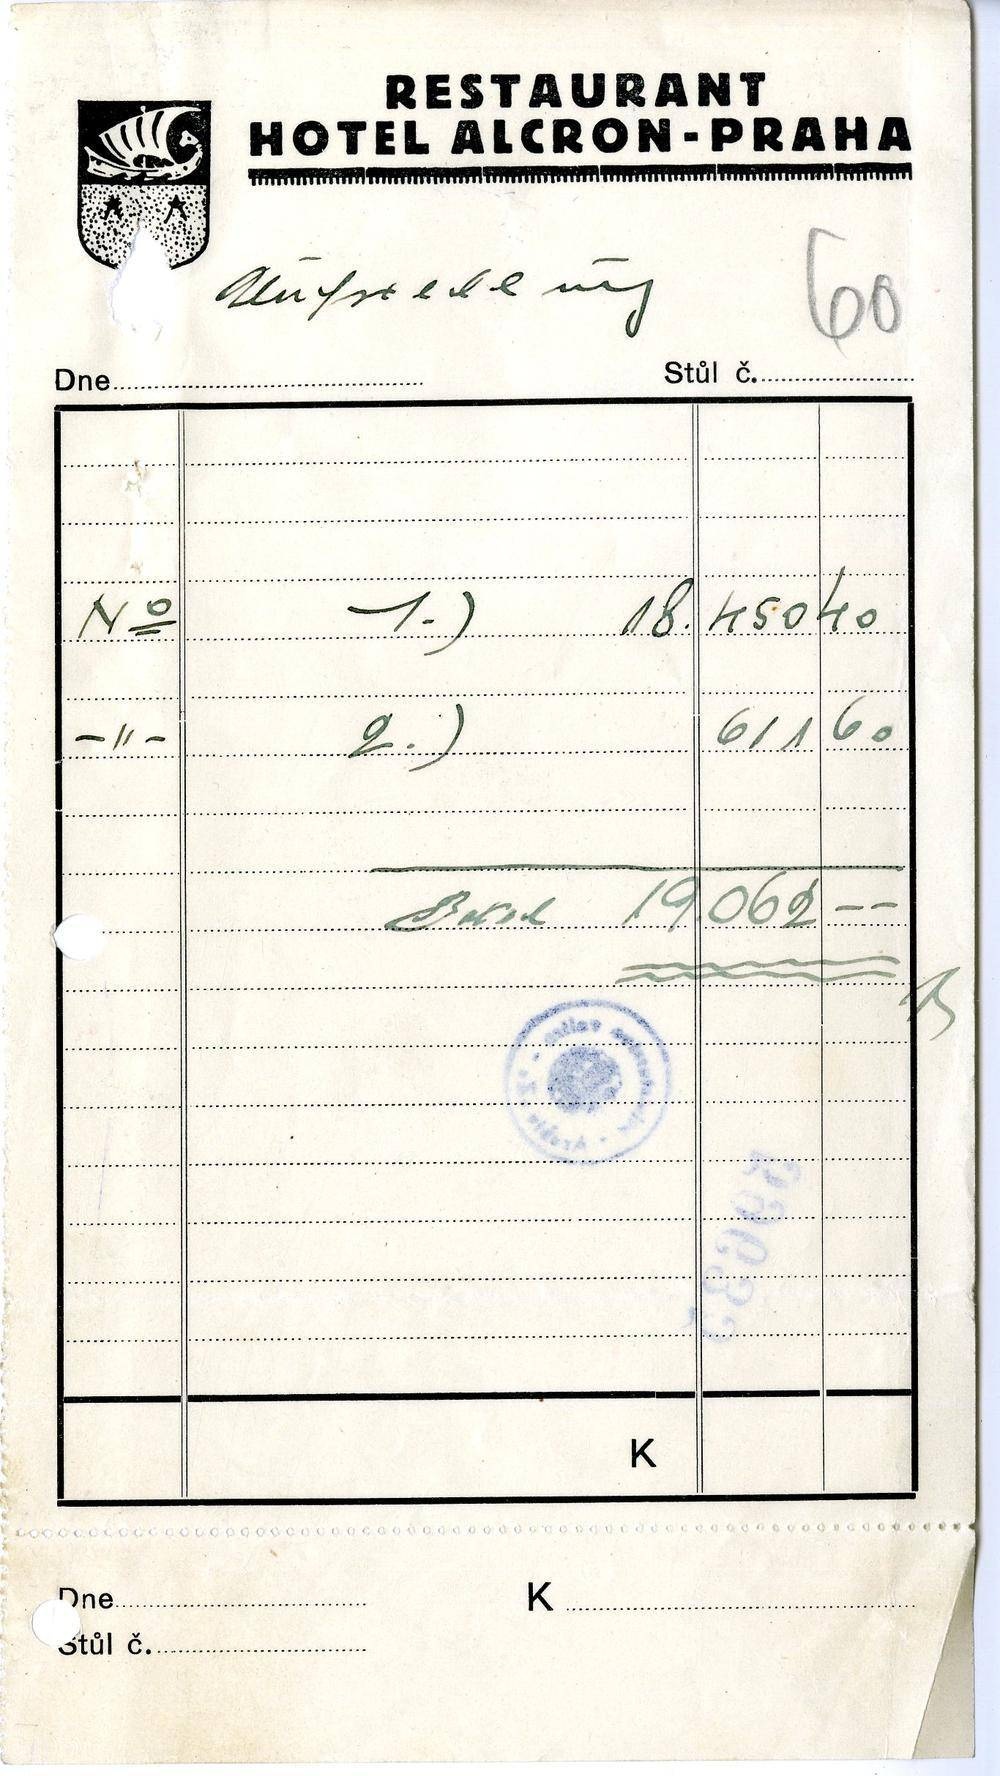 RESTAURANT
HOTEL ALCRON-PRAHA
Aufstellung
60
Dne
Stůl č.
No 1.) 18.450 40
-"- 2.) 611 60
19.062 --
K
Dne
K
Stůl č.